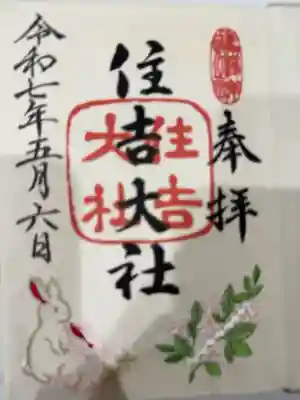 奉拝
住吉大社
住吉
大社
令和七年五月六日